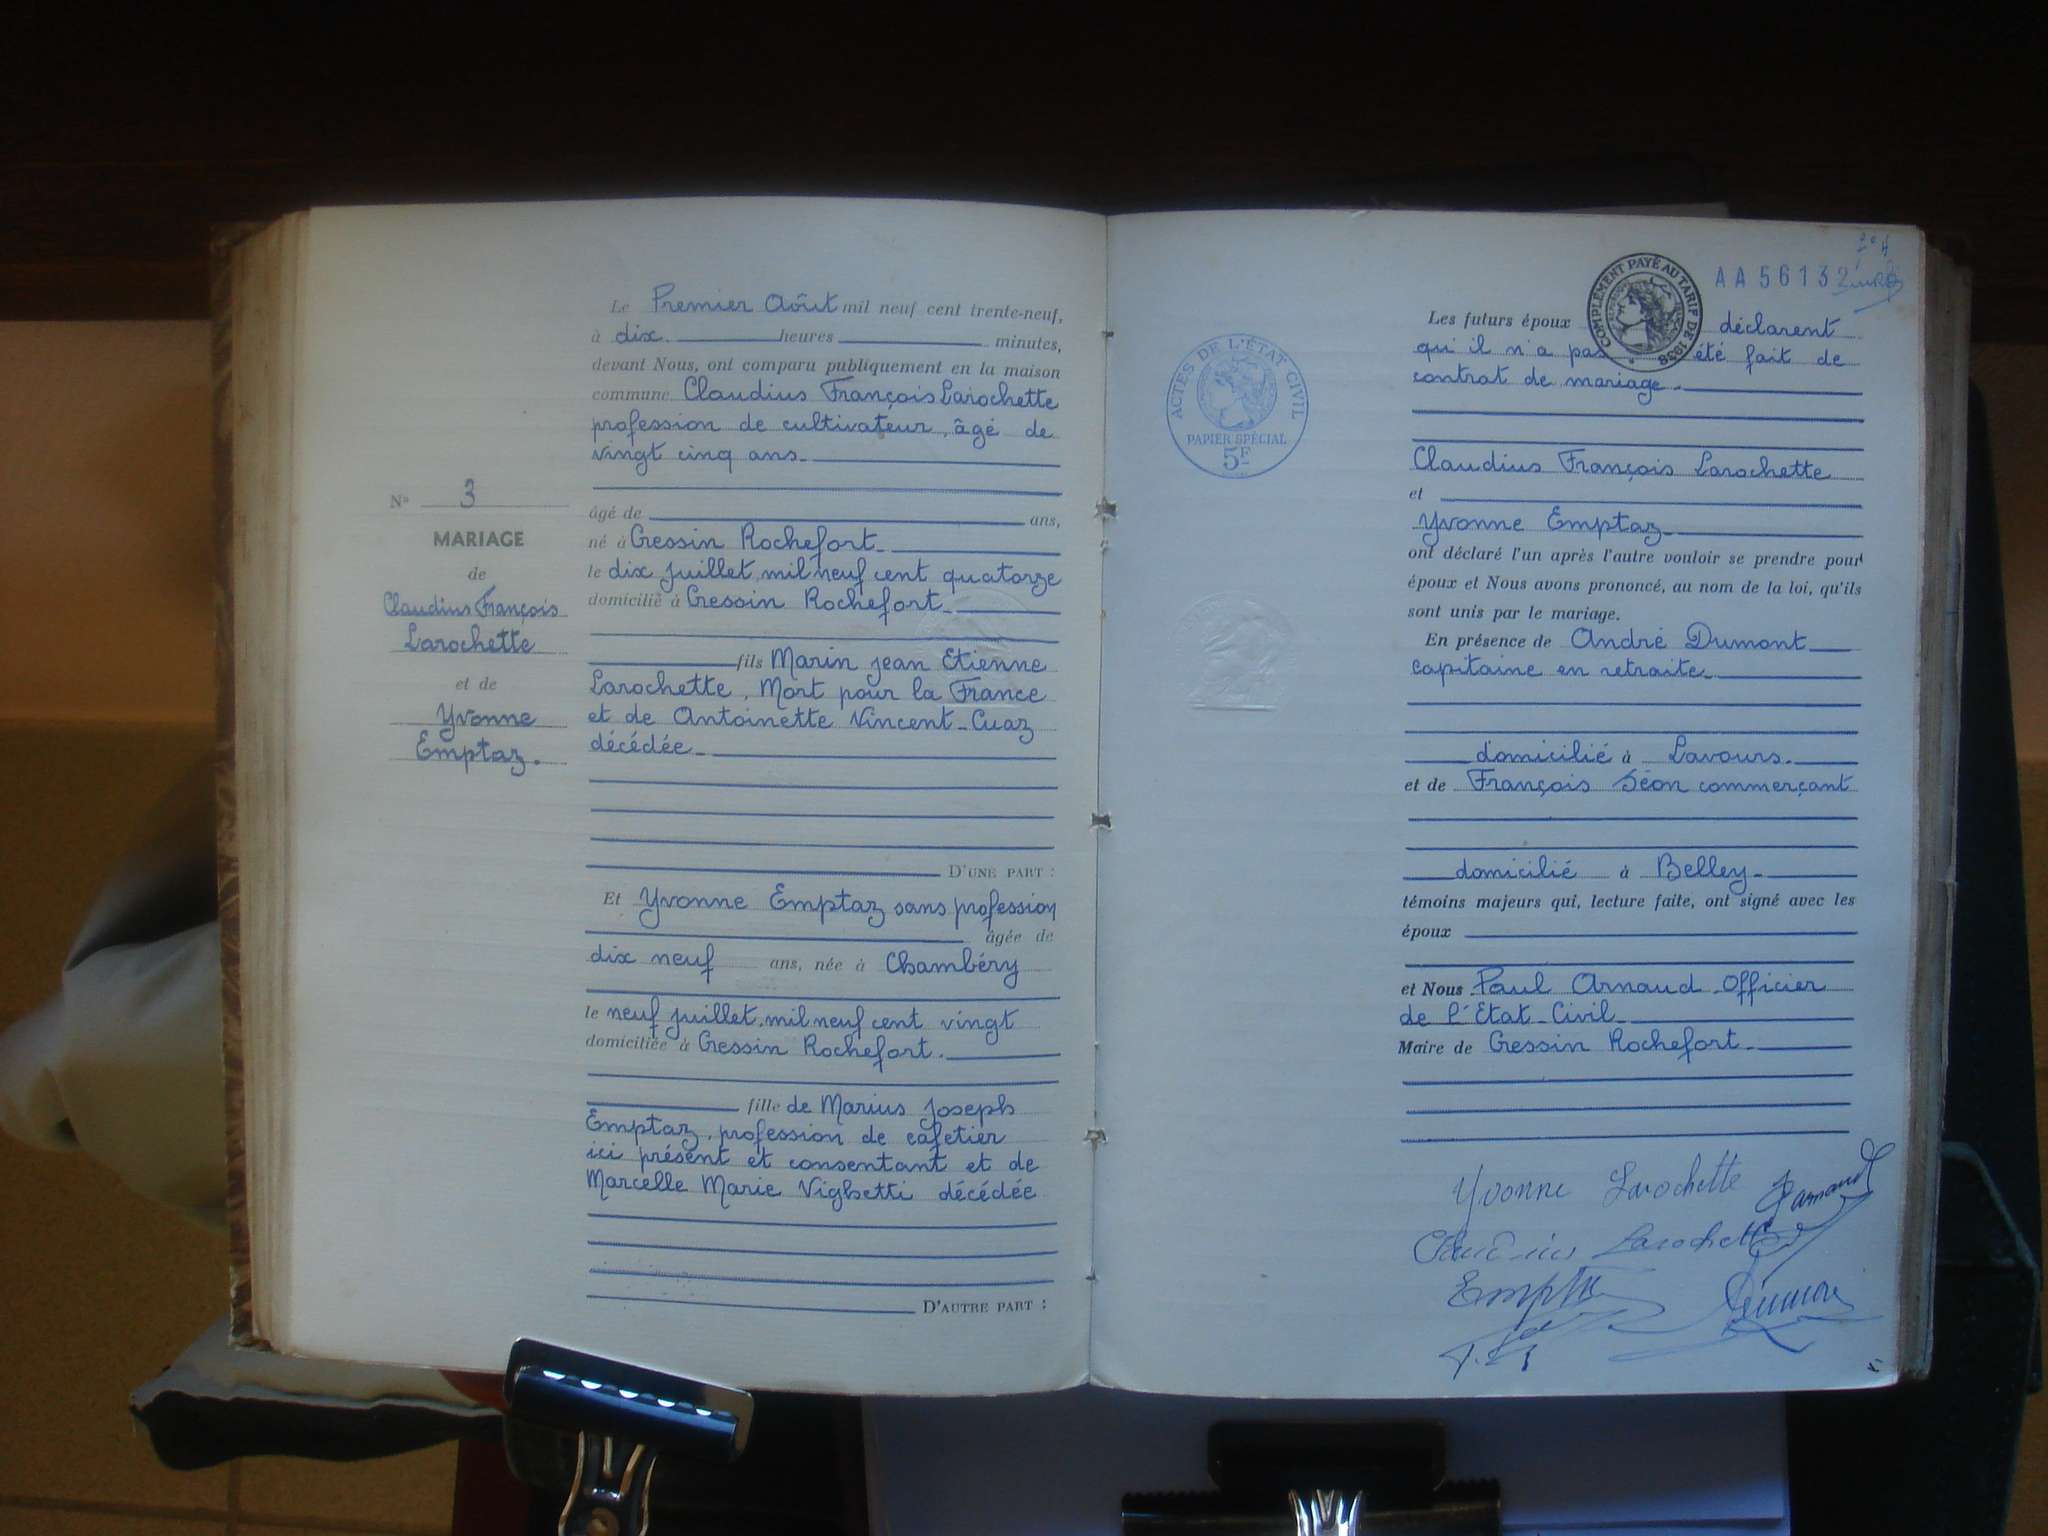 Le Premier Août mil neuf cent trente-neuf,
à dix heures minutes,
devant Nous, ont comparu publiquement en la maison
commune Claudius François Larochette
profession de cultivateur, âgé de
vingt cinq ans
âgé de ans,
né à Cressin Rochefort
le dix juillet, mil neuf cent quatorze
domicilié à Cressin Rochefort
fils Marin Jean Etienne
Larochette, Mort pour la France
et de Antoinette Vincent-Cuaz
décédée
D'UNE PART :
Et Yvonne Emptaz sans profession
âgée de
dix neuf ans, née à Chambéry
le neuf juillet, mil neuf cent vingt
domiciliée à Cressin Rochefort.
fille de Marius Joseph
Emptaz, profession de cafetier
ici présent et consentant et de
Marcelle Marie Vighetti décédée
D'AUTRE PART :
N° 3
MARIAGE
de
Claudius François
Larochette
et de
Yvonne
Emptaz.
ACTES DE L'ÉTAT CIVIL
PAPIER SPÉCIAL
5F
COMPLÉMENT PAYÉ AU TARIF DE 1938
AA 56132
Les futurs époux déclarent
qu'il n'a pas été fait de
contrat de mariage.
Claudius François Larochette
et
Yvonne Emptaz
ont déclaré l'un après l'autre vouloir se prendre pour
époux et Nous avons prononcé, au nom de la loi, qu'ils
sont unis par le mariage.
En présence de André Dumont
capitaine en retraite
domicilié à Lavours.
et de François Séon commerçant
domicilié à Belley
témoins majeurs qui, lecture faite, ont signé avec les
époux
et Nous Paul Arnaud Officier
de l'Etat-Civil
Maire de Cressin Rochefort
Yvonne Larochette
Parnaud
Claudius Larochette